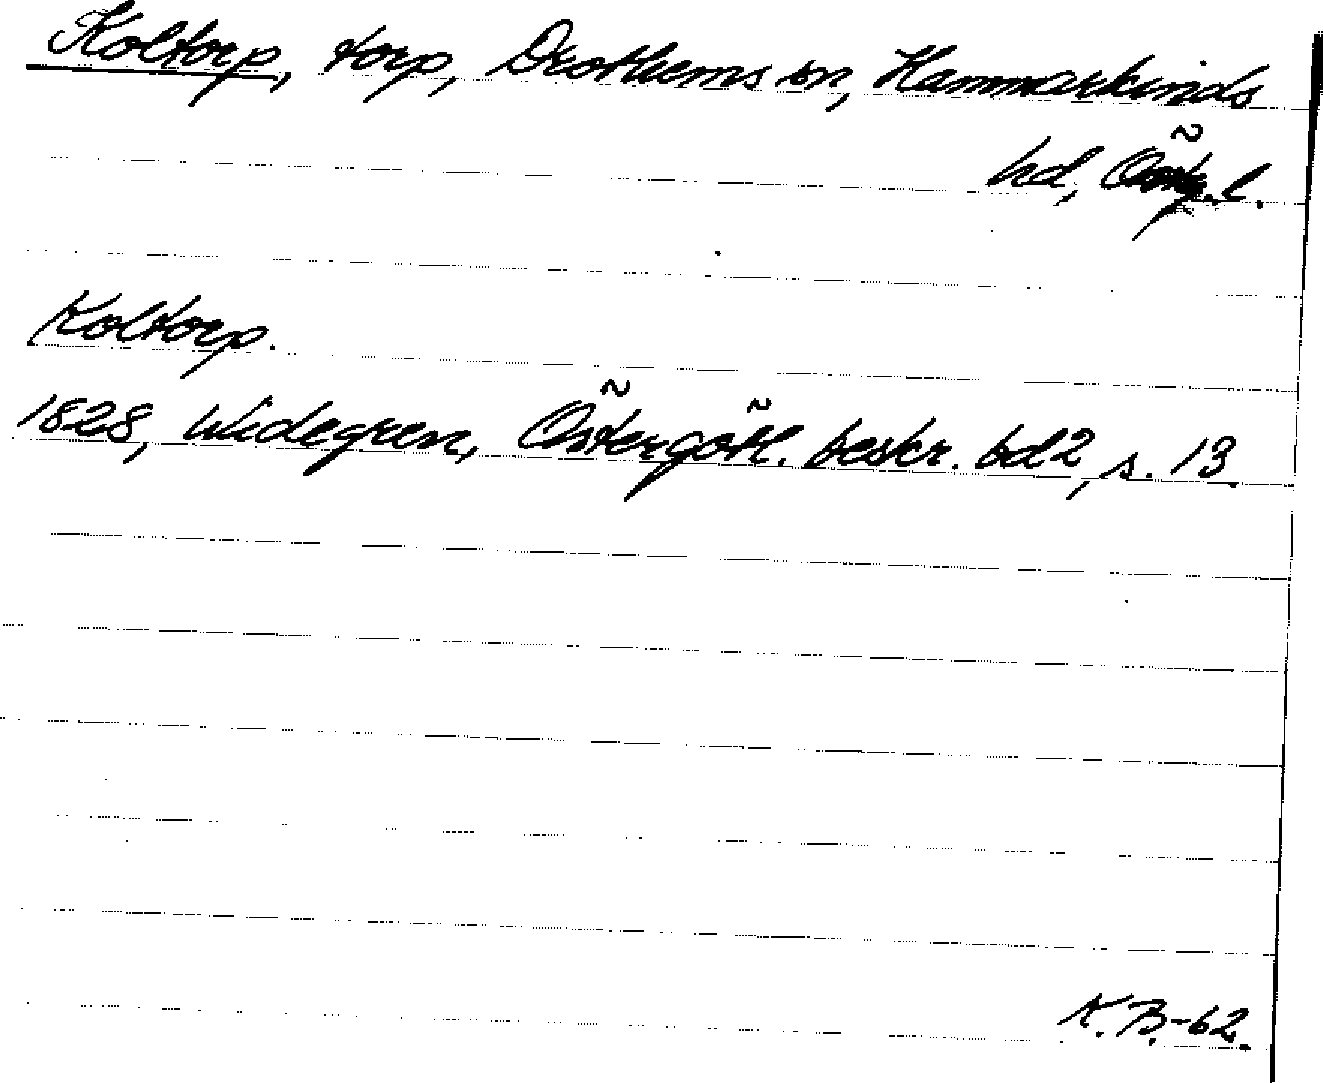 Koltorp, torp, Drothems sn, Hammarkinds
hd, Östg.l.
Koltorp.
1828, Widegren, Östergötl. beskr. bd2, s. 13.
K.B.-62.